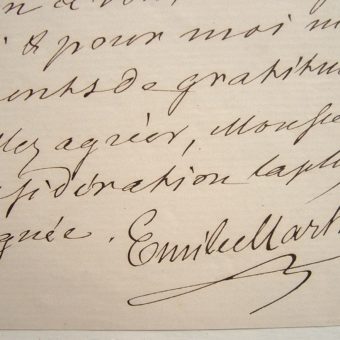 & pour moi
ents de gratitu
llez agréer, Monsie
sidération la pl
guée. Emile Mart